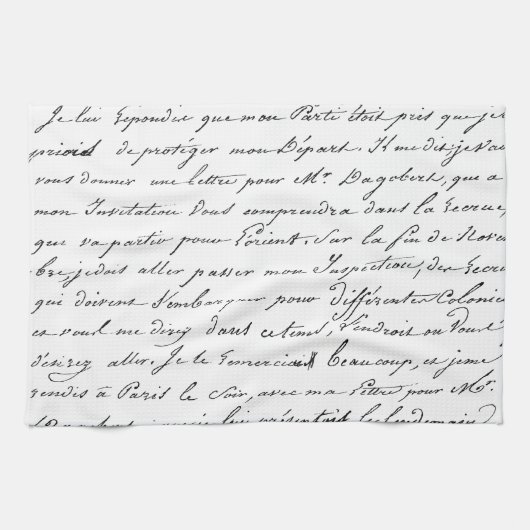 Je lui Repondis que mon Parti étoit pris que je
priois de protéger mon Départ. Il me dit, je vai
vous donner une Lettre pour Mr. Dagobert, que a
mon Invitation vous comprendra dans la Recrue,
que va partir pour L'orient. Sur la fin de Novem
bre, je dois aller passer mon Inspection, des Recru
qui doivent s'embarquer pour différentes Colonie
et vous me direz dans ce tems, l'endroit ou vous
désirez aller. Je le Remerciai beaucoup, et je me
rendis à Paris le Soir, avec ma Lettre pour Mr.
lui présentois le lendemain